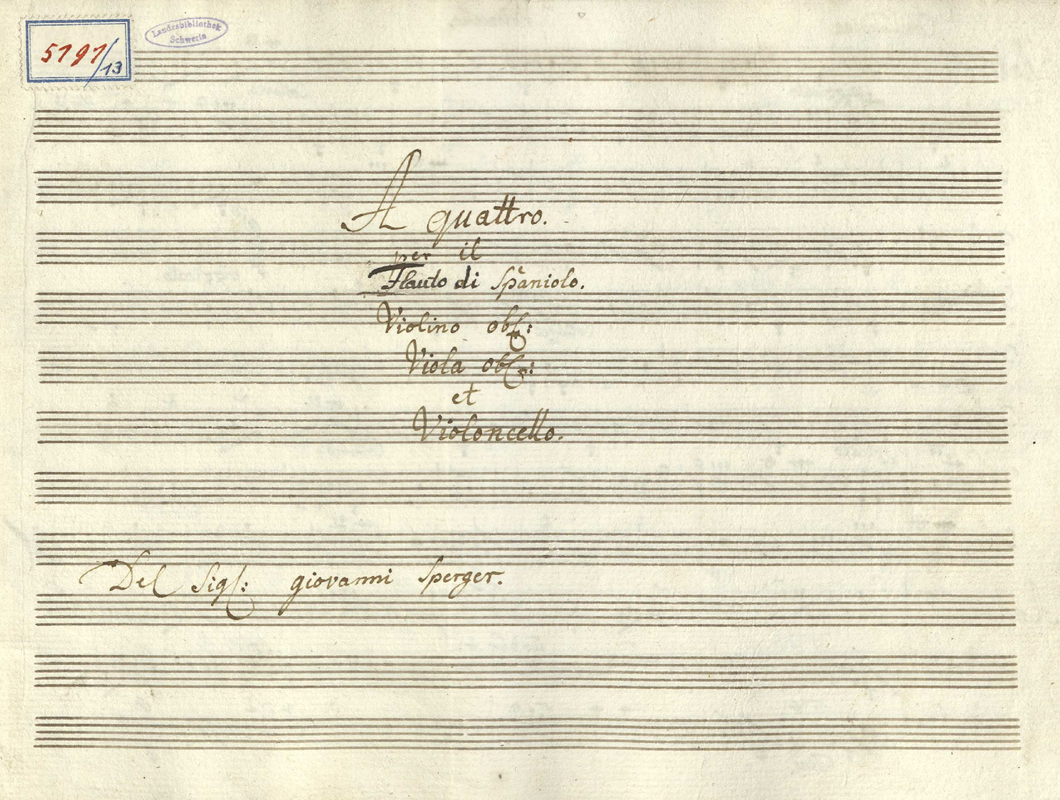 5191/13
Landesbibliothek
Schwerin
A quattro.
per il
Flauto di Spaniolo.
Violino obl:
Viola obl:
et
Violoncello.
Del Sigl: giovanni Sperger.